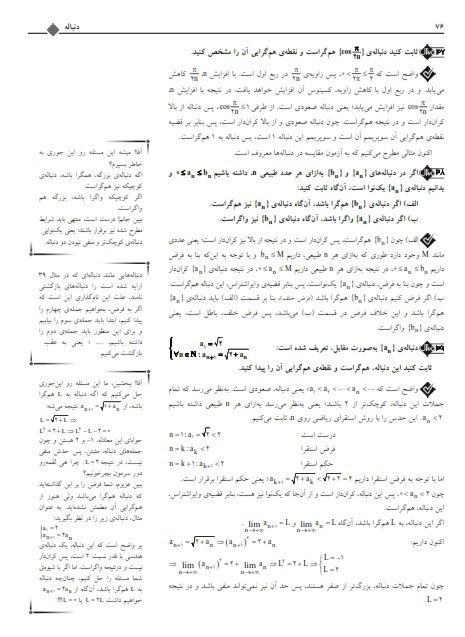 ۷۶
دنباله
ثابت کنید دنباله‌ی {cos π/۲n} هم‌گراست و نقطه‌ی هم‌گرایی آن را مشخص کنید.
واضح است که ۰ < π/۲n ≤ π/۲، پس زاویه‌ی π/۲n در ربع اول است. با افزایش n، π/۲n کاهش
می‌یابد. و در ربع اول با کاهش زاویه، کسینوس آن افزایش خواهد یافت. در نتیجه با افزایش n،
مقدار cos π/۲n نیز افزایش می‌یابد؛ یعنی دنباله صعودی است. از طرفی cos π/۲n ≤ ۱، پس دنباله از بالا
کران‌دار است و در نتیجه هم‌گراست. چون دنباله صعودی و از بالا کران‌دار است، پس بنابر قضیه
نقطه‌ی هم‌گرایی آن سوپریمم آن است و سوپریمم این دنباله ۱ است، پس دنباله به ۱ هم‌گراست.
اکنون مثالی مطرح می‌کنیم که به آزمون مقایسه در دنباله‌ها معروف است.
اگر در دنباله‌های {aₙ} و {bₙ} به‌ازای هر عدد طبیعی n، داشته باشیم ۰ ≤ aₙ ≤ bₙ و
بدانیم دنباله‌ی {aₙ} یک‌نوا است، آن‌گاه ثابت کنید:
الف) اگر {bₙ} هم‌گرا باشد، آن‌گاه دنباله‌ی {aₙ} نیز هم‌گراست.
ب) اگر {aₙ} واگرا باشد، آن‌گاه دنباله‌ی {bₙ} نیز واگراست.
الف) چون {bₙ} هم‌گراست، پس کران‌دار است و در نتیجه از بالا نیز کران‌دار است؛ یعنی عددی
مانند M وجود دارد طوری که به‌ازای هر n طبیعی، داریم bₙ ≤ M و با توجه به این‌که بنا به فرض
داریم ۰ ≤ aₙ ≤ bₙ، در نتیجه به‌ازای هر n طبیعی داریم ۰ ≤ aₙ ≤ M، در نتیجه دنباله‌ی {aₙ} کران‌دار
است و چون بنا به فرض، دنباله‌ی {aₙ} یک‌نواست، پس بنابر قضیه‌ی وایراشتراس، این دنباله هم‌گراست.
ب) اگر فرض کنیم دنباله‌ی {bₙ} هم‌گرا باشد (فرض خلف)، بنا بر قسمت (الف) باید دنباله‌ی {aₙ}
هم‌گرا باشد و این خلاف فرض در قسمت (ب) می‌باشد، پس فرض خلف، باطل است، یعنی
دنباله‌ی {bₙ} واگراست.
دنباله‌ی {aₙ} به‌صورت مقابل، تعریف شده است: { a₁ = √۲ , ∀n∈ℕ ; aₙ₊₁ = √(۲+aₙ)
ثابت کنید این دنباله، هم‌گراست و نقطه‌ی هم‌گرایی آن را پیدا کنید.
واضح است که ... a₁ < a₂ < ... < aₙ < یعنی دنباله، صعودی است. به‌نظر می‌رسد که تمام
جملات این دنباله، کوچک‌تر از ۲ باشند؛ یعنی به‌نظر می‌رسد به‌ازای هر n طبیعی داشته باشیم
aₙ < ۲. این حدس را با روش استقرای ریاضی روی n، ثابت می‌کنیم.
n = ۱: a₁ = √۲ < ۲ درست است
n = k: aₖ < ۲ فرض استقرا
n = k+۱: aₖ₊₁ < ۲ حکم استقرا
اما با توجه به فرض استقرا داریم aₖ₊₁ = √(۲+aₖ) < √(۲+۲) = ۲؛ یعنی حکم استقرا برقرار است.
چون ۰ < aₙ < ۲، پس این دنباله، کران‌دار است و از آن‌جا که یک‌نوا نیز هست، بنابر قضیه‌ی وایراشتراس،
این دنباله، هم‌گراست.
اگر این دنباله، به L هم‌گرا باشد، آن‌گاه lim aₙ = L (n→+∞) و lim aₙ₊₁ = L (n→+∞).
اکنون داریم: aₙ₊₁ = √(۲+aₙ) ⇒ (aₙ₊₁)² = ۲+aₙ
⇒ lim (aₙ₊₁)² (n→+∞) = ۲ + lim aₙ (n→+∞) ⇒ L² = ۲+L ⇒ { L = −۱ , L = ۲
چون تمام جملات دنباله، بزرگ‌تر از صفر هستند، پس حد آن نیز نمی‌تواند منفی باشد و در نتیجه
L = ۲.
آقا! میشه این مسئله رو این جوری به
خاطر بسپرم؟
اگه دنباله‌ی بزرگه، همگرا باشه، دنباله‌ی
کوچیکه نیز هم‌گراست.
اگر کوچیکه واگرا باشه، بزرگه هم
واگراست.
ببین جانم! درست است، منتهی باید شرایط
مطرح شده نیز برقرار باشند؛ یعنی یک‌نوایی
دنباله‌ی کوچک‌تر و منفی نبودن دو دنباله.
دنباله‌هایی مانند دنباله‌ای که در مثال ۳۹
ارایه شده است را دنباله‌های بازگشتی
نامند. علت این نام‌گذاری این است که
اگر به فرض، بخواهیم جمله‌ی چهارم را
پیدا کنیم، ابتدا باید جمله‌ی سوم را بیابیم
و برای این منظور باید جمله‌ی دوم را
داشته باشیم، .... ؛ یعنی به عقب
بازگشت می‌کنیم.
آقا! ببخشین، ما این مسئله رو این‌جوری
حل می‌کنیم که اگه دنباله به L هم‌گرا
باشه، از aₙ₊₁ = √(۲+aₙ) نتیجه می‌شه:
L = √(۲+L) ⇒
L² = ۲+L ⇒ L² − L − ۲ = ۰
جوابای این معادله، ۱− و ۲ هستن و چون
جمله‌های دنباله، مثبتن، پس حدش منفی
نیست، در نتیجه L = ۲. چرا هی لقمه‌رو
دور سرمون بچرخونیم؟
ببین عزیزم شما فرض را بر این گذاشته‌اید
که دنباله هم‌گرا می‌باشد ولی هنوز از
هم‌گرایی آن مطمئن نشده‌اید. به عنوان
مثال، دنباله‌ی زیر را در نظر بگیرید:
{ a₁ = ۲
aₙ₊₁ = ۲aₙ
پر واضح است که این دنباله، یک دنباله‌ی
هندسی با قدر نسبت ۲ است، پس کران‌دار
نیست و درنتیجه واگراست. اما اگر با شیوه‌ی
شما مسئله را حل کنیم، چنان‌چه دنباله
به L هم‌گرا باشد، آن‌گاه از aₙ₊₁ = ۲aₙ
خواهیم داشت L = ۲L یا L = ۰ !!!